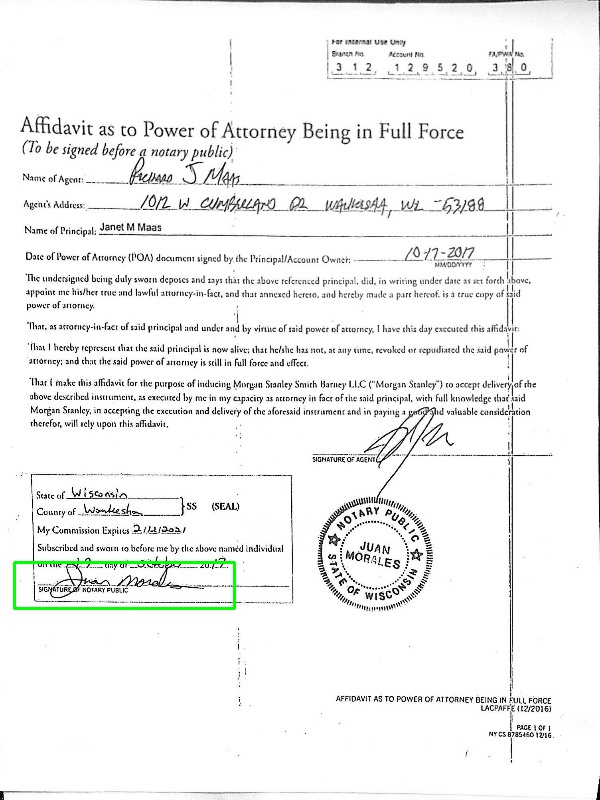 For Internal Use Only
Branch No. Account No. FA/PWA No.
3 1 2 1 2 9 5 2 0 3 8 0
Affidavit as to Power of Attorney Being in Full Force
(To be signed before a notary public)
Name of Agent: Richard J Maas
Agent's Address: 1012 W Cumberland DR Waukesha, WI -53188
Name of Principal: Janet M Maas
Date of Power of Attorney (POA) document signed by the Principal/Account Owner: 10-17-2017
MM/DD/YYYY
The undersigned being duly sworn deposes and says that the above referenced principal, did, in writing under date as set forth above,
appoint me his/her true and lawful attorney-in-fact, and that annexed hereto, and hereby made a part hereof, is a true copy of said
power of attorney.
That, as attorney-in-fact of said principal and under and by virtue of said power of attorney, I have this day executed this affidavit.
That I hereby represent that the said principal is now alive; that he/she has not, at any time, revoked or repudiated the said power of
attorney; and that the said power of attorney is still in full force and effect.
That I make this affidavit for the purpose of inducing Morgan Stanley Smith Barney LLC ("Morgan Stanley") to accept delivery of the
above described instrument, as executed by me in my capacity as attorney in fact of the said principal, with full knowledge that said
Morgan Stanley, in accepting the execution and delivery of the aforesaid instrument and in paying a good and valuable consideration
therefor, will rely upon this affidavit.
SIGNATURE OF AGENT
State of Wisconsin
County of Waukesha } SS (SEAL)
My Commission Expires 2/12/2021
Subscribed and sworn to before me by the above named individual
on the 17 day of October 2017
Juan Morales
SIGNATURE OF NOTARY PUBLIC
NOTARY PUBLIC
JUAN
MORALES
STATE OF WISCONSIN
AFFIDAVIT AS TO POWER OF ATTORNEY BEING IN FULL FORCE
LACPAFFE (12/2016)
PAGE 1 OF 1
NY CS 8785460 12/16